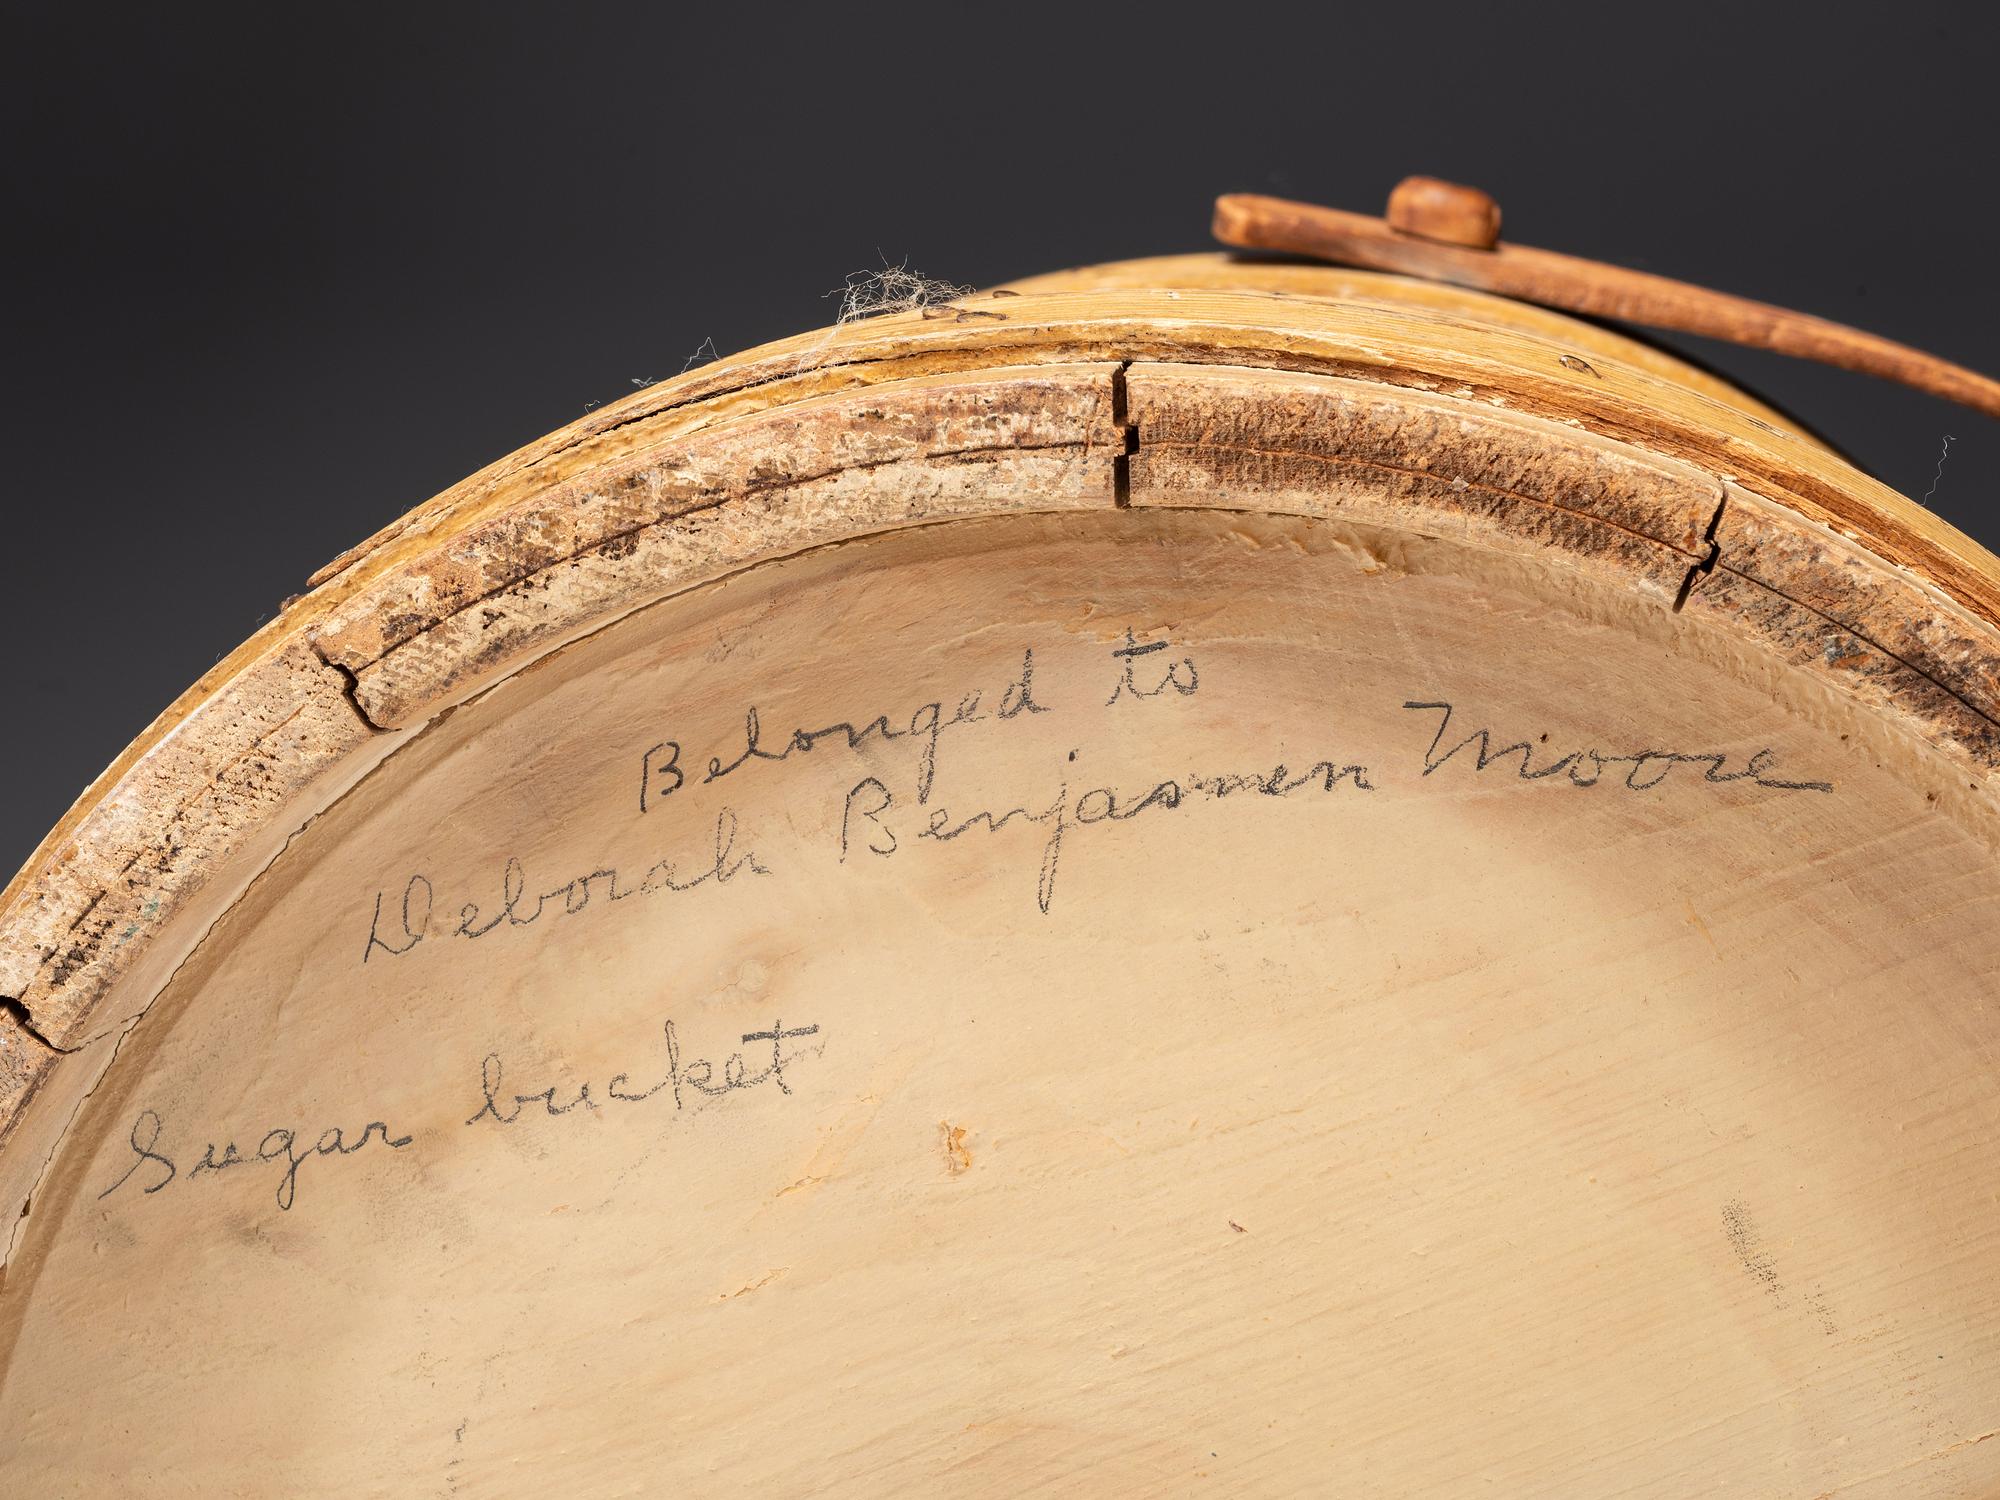 Belonged to
Deborah Benjasmen Moore
Sugar bucket